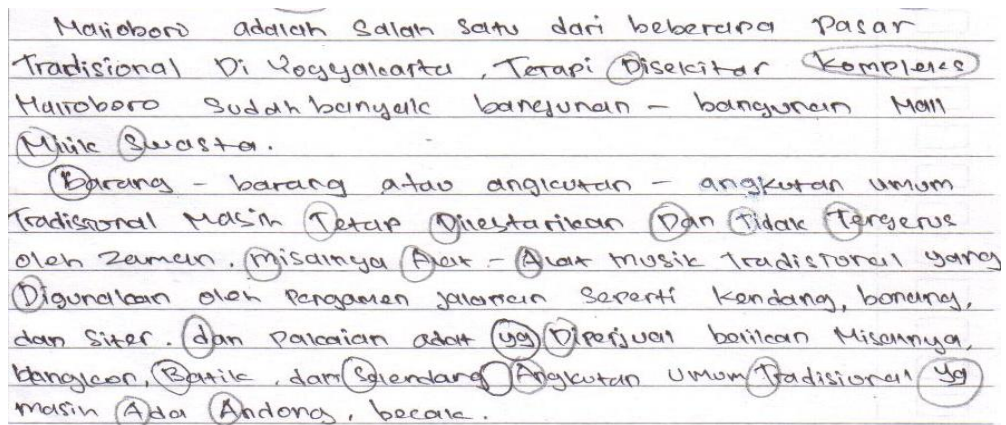 Malioboro adalah salah satu dari beberapa Pasar
Tradisional Di Yogyakarta, Tetapi Disekitar Kompleks
Malioboro Sudah banyak bangunan - bangunan Mall
Milik Swasta.
Barang - barang atau angkutan - angkutan umum
Tradisional Masih Tetap Dilestarikan Dan Tidak Tergerus
oleh Zaman. misalnya Alat - Alat musik tradisional yang
Digunakan oleh Pengamen jalanan Seperti Kendang, bonang,
dan Siter. dan Pakaian adat yg Diperjual belikan Misalnya,
blangkon, Batik, dan Selendang Angkutan Umum Tradisional yg
masih Ada Andong, becak.